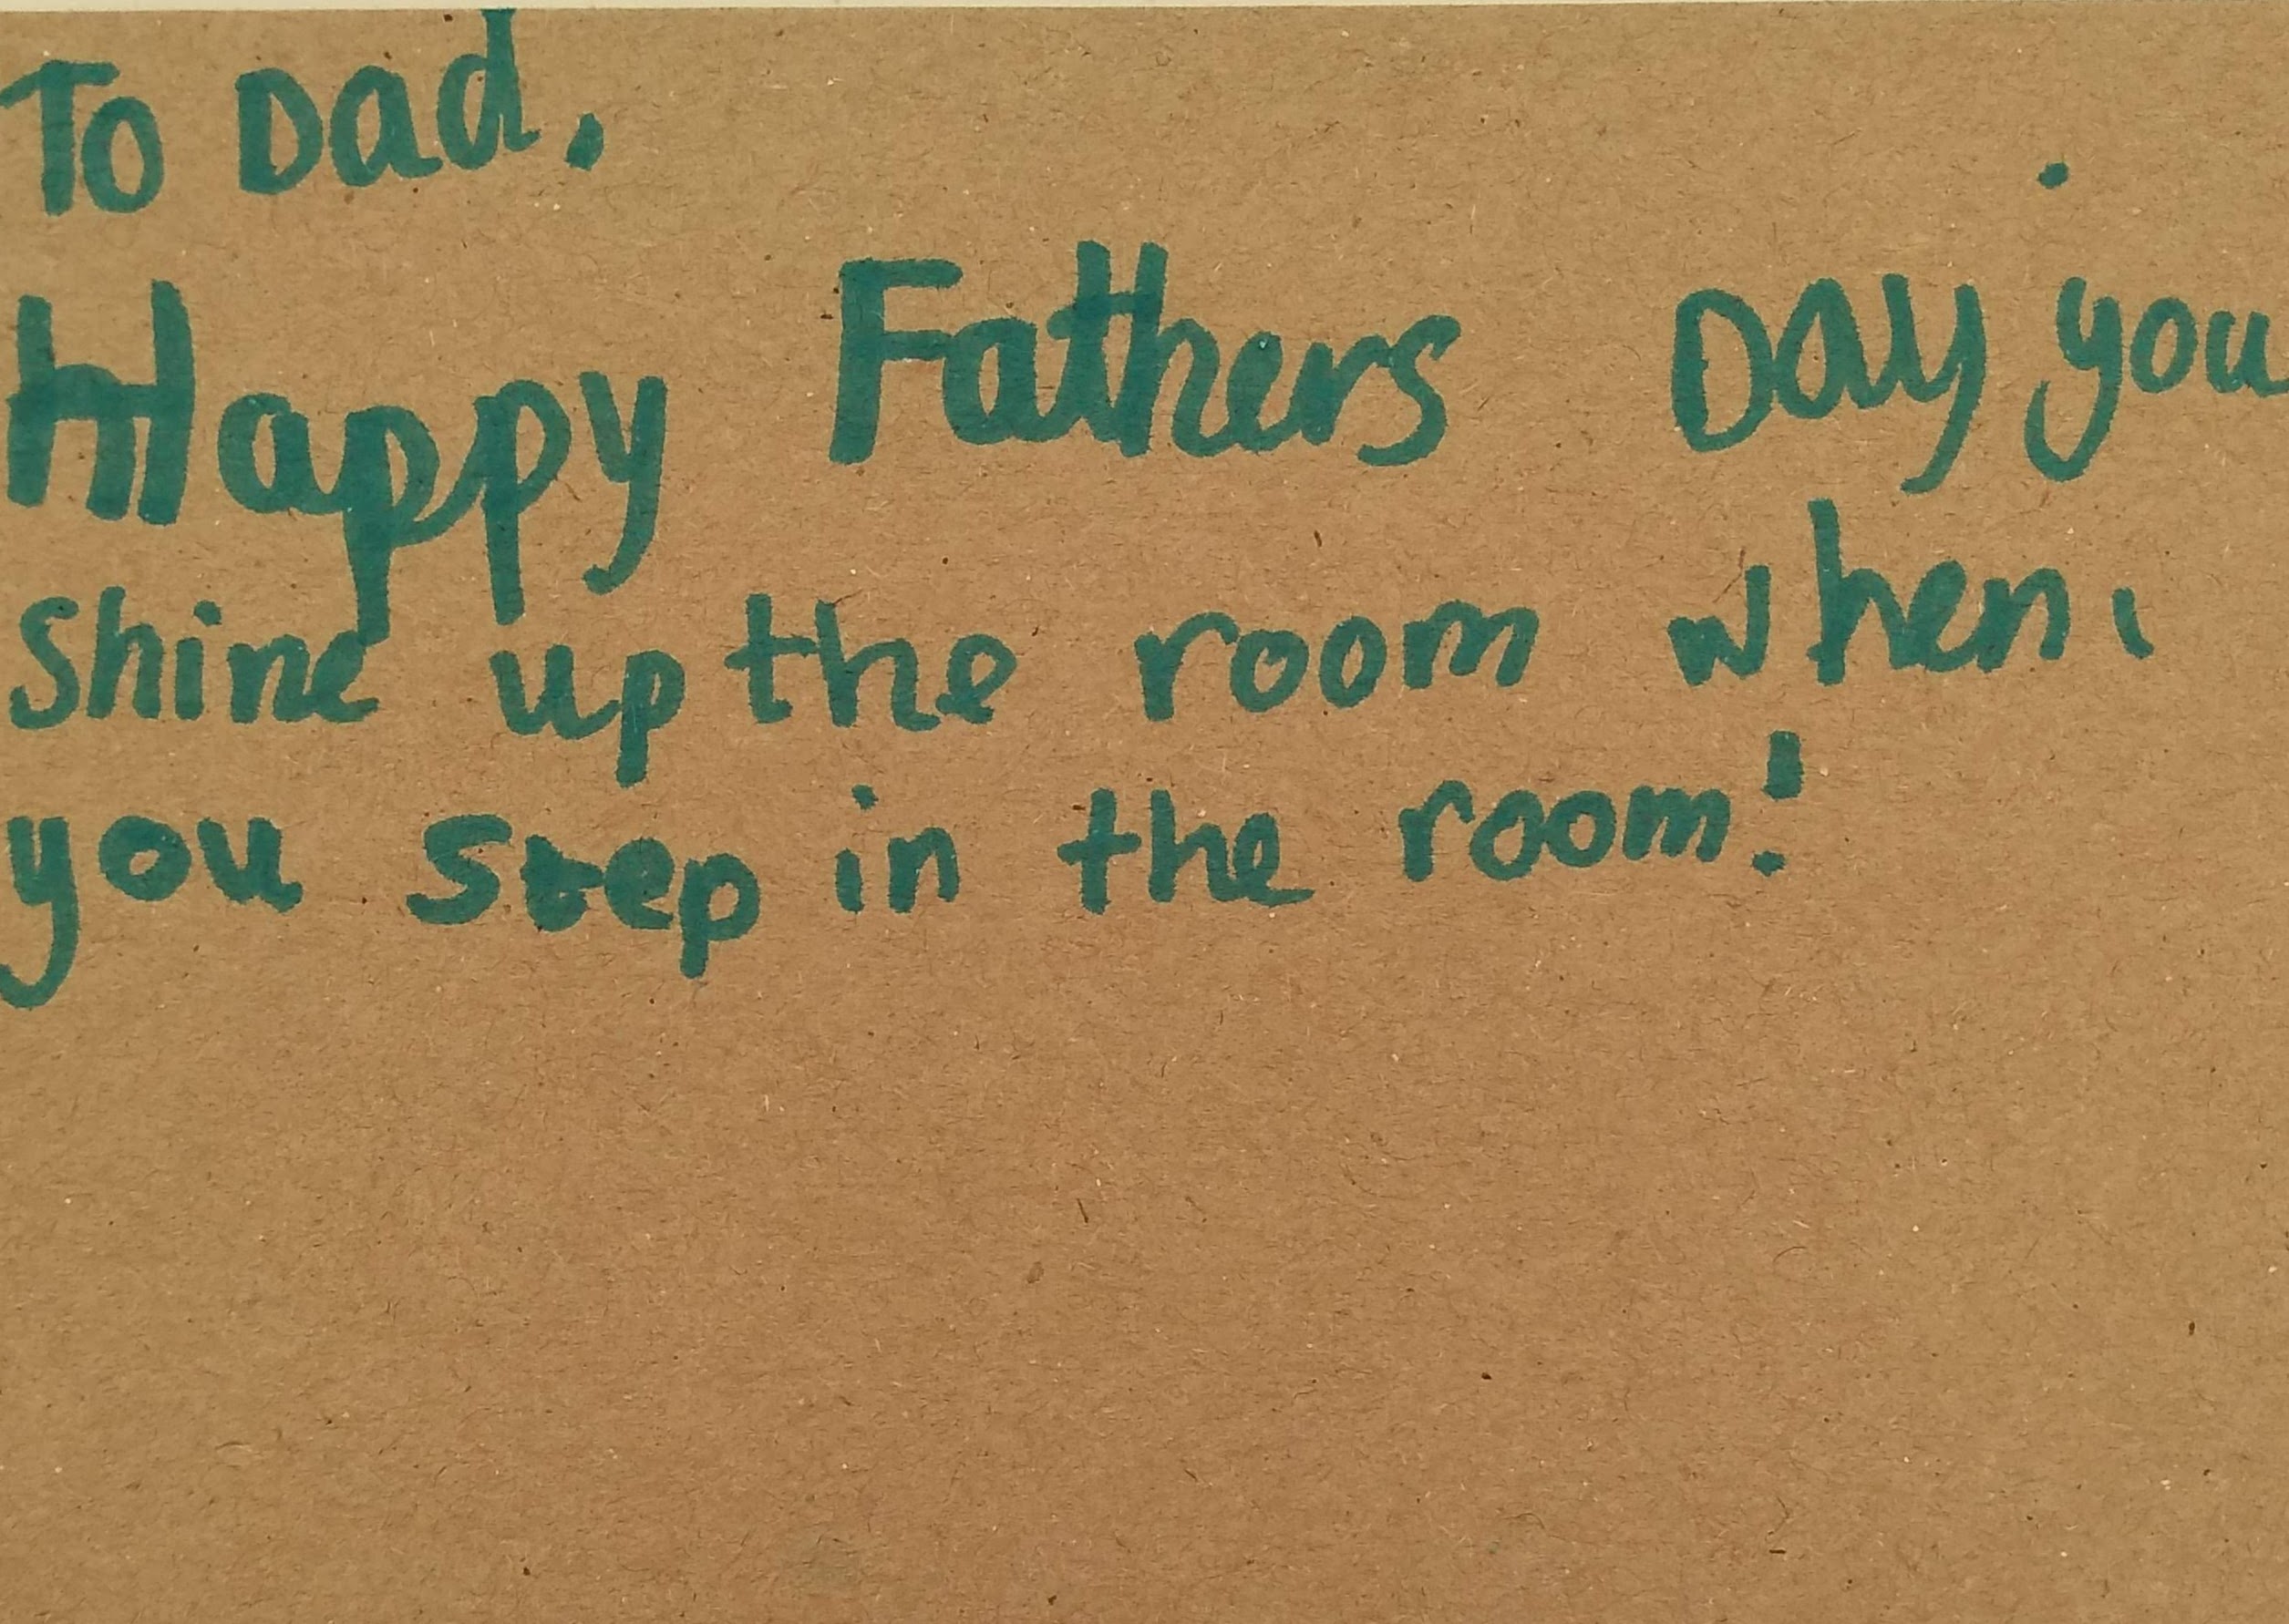 To Dad,
Happy Fathers Day you
Shine up the room when,
you step in the room!